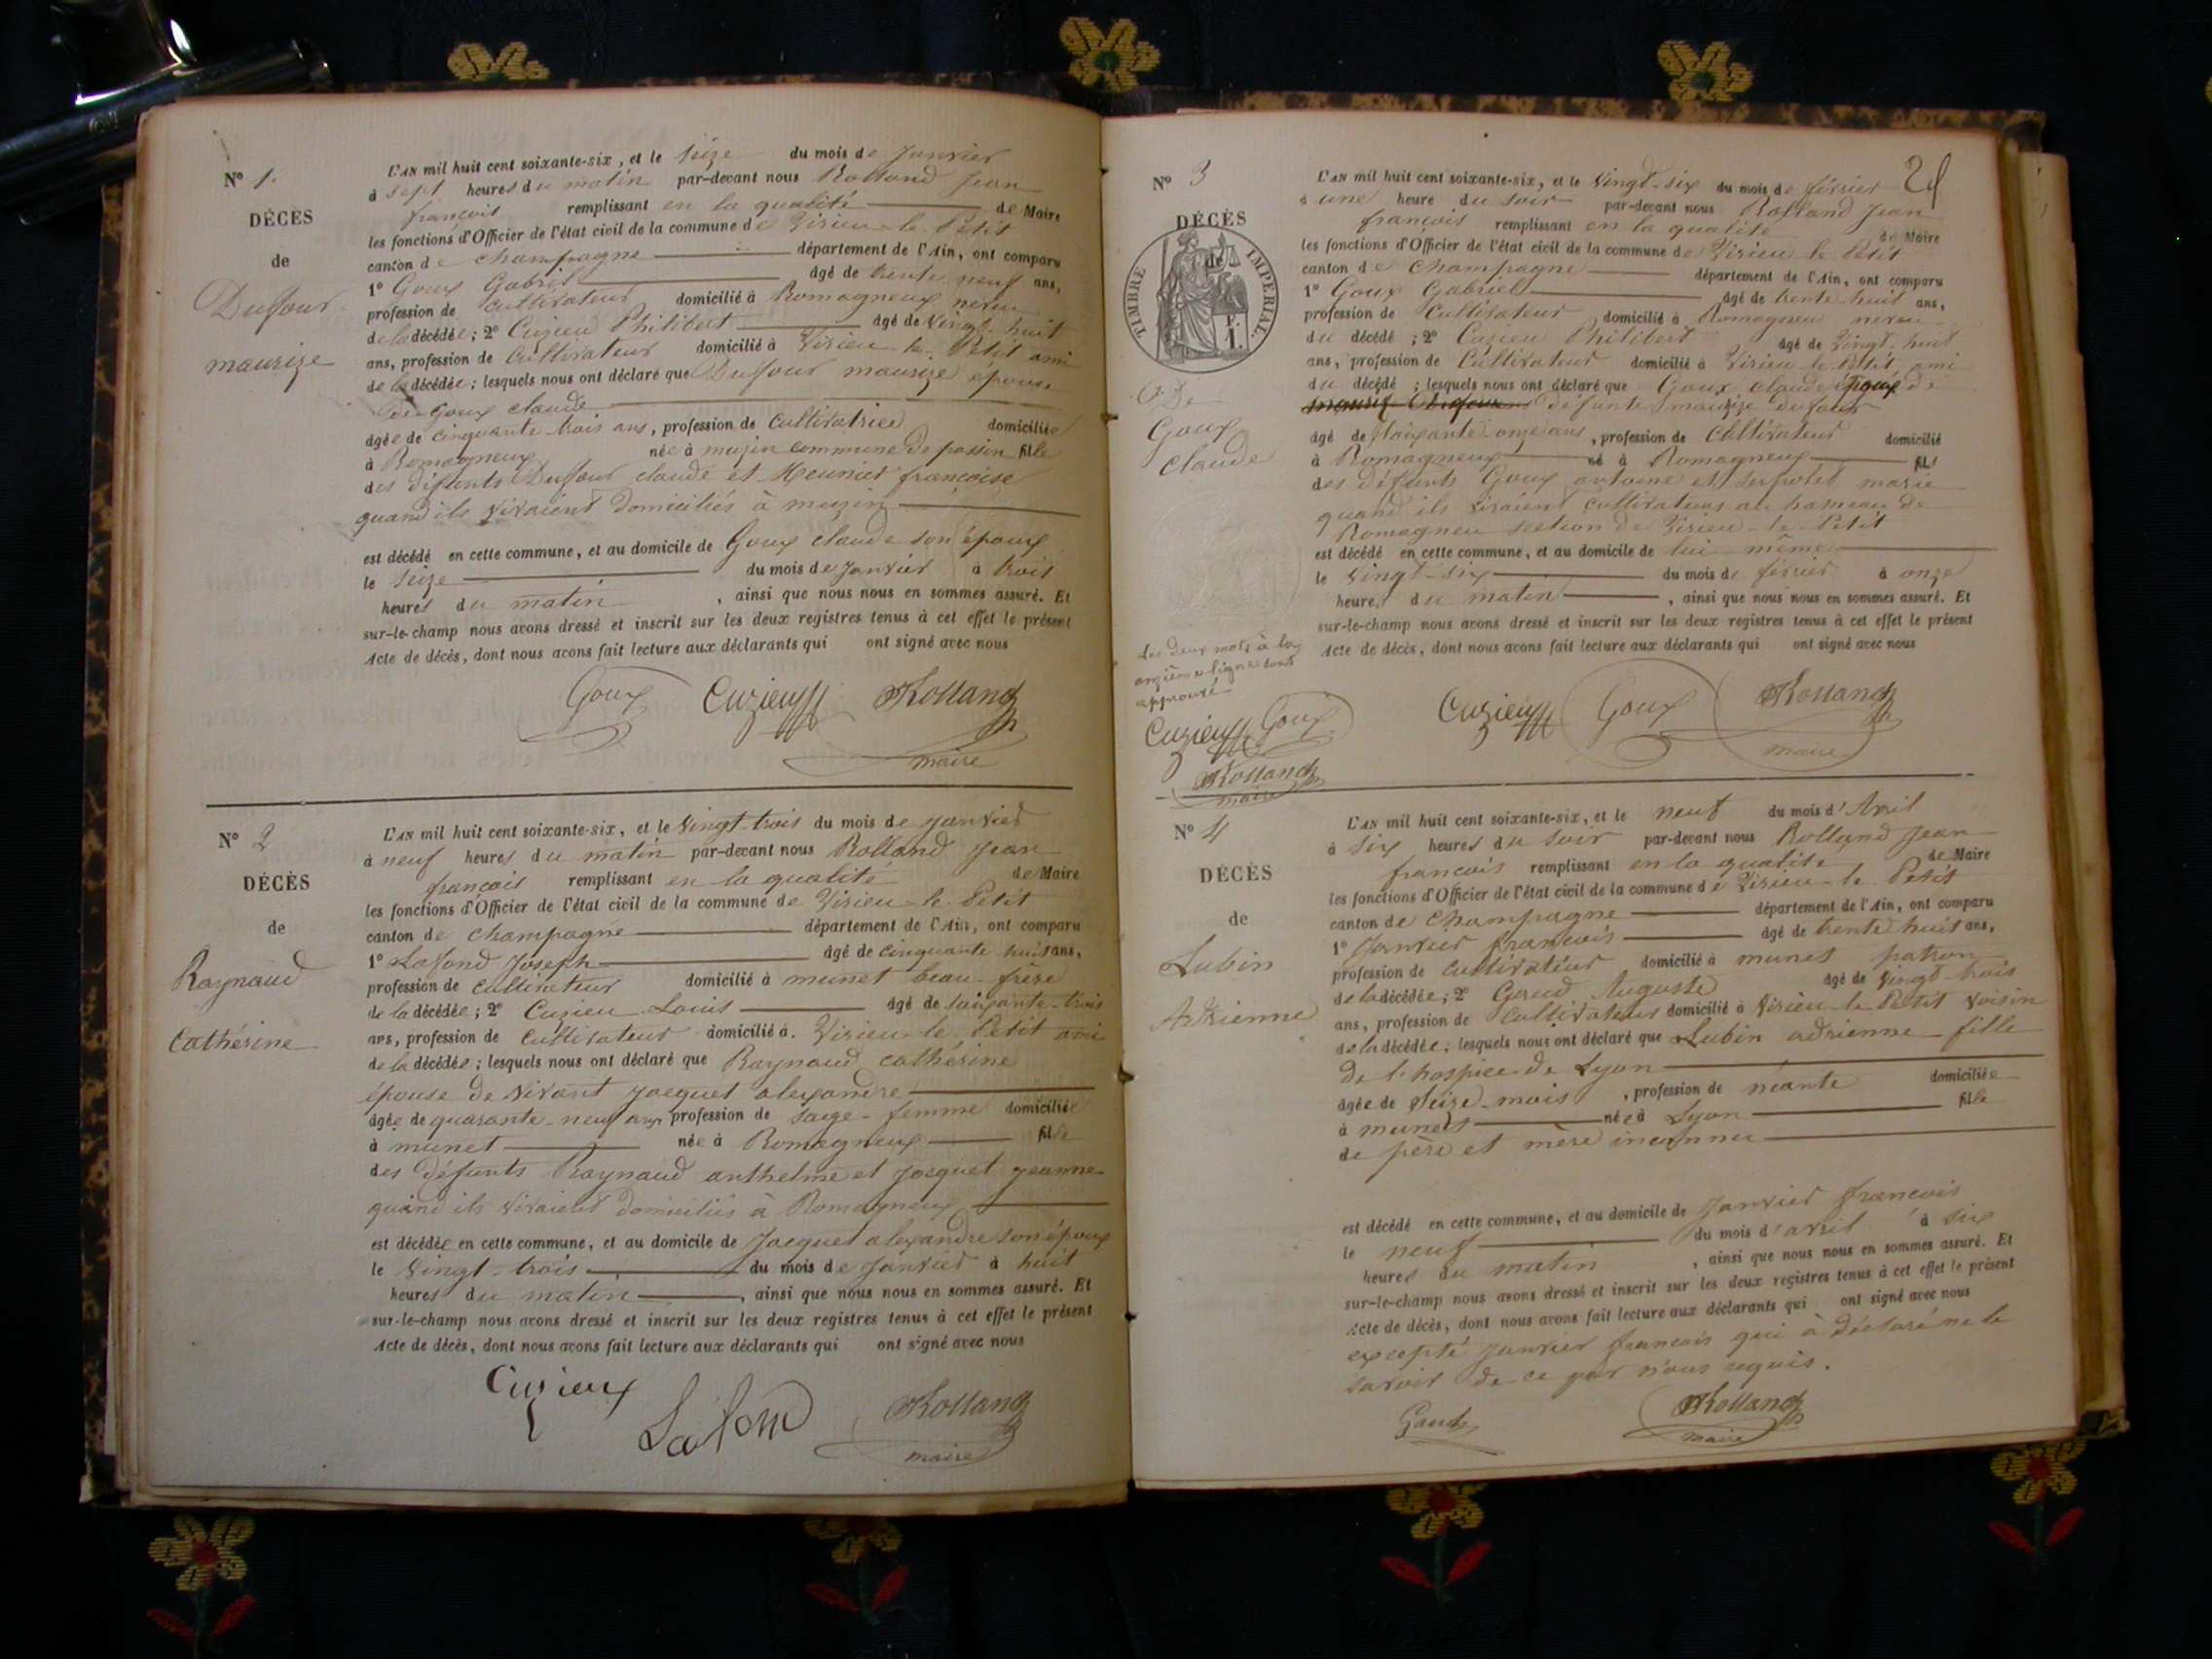 N° 1.
DÉCÈS
de
Duffour
maurize
L'AN mil huit cent soixante-six, et le seize du mois de janvier
à sept heures du matin par-devant nous Rolland Jean
françois remplissant en la qualité de Maire
les fonctions d'Officier de l'état civil de la commune de Virieu-le-Petit
canton de champagne département de l'Ain, ont comparu
1° Goux Gabriel âgé de trente neuf ans,
profession de cultivateur domicilié à Romagneux neveu
de la décédée; 2° Cuzieu Philibert âgé de vingt-huit
ans, profession de cultivateur domicilié à Virieu le Petit ami
de la décédée; lesquels nous ont déclaré que Duffour maurize épouse
de Goux claude
âgée de cinquante trois ans, profession de cultivatrice domiciliée
à Romagneux née à muzin commune de passin fille
des défunts Duffour claude et Meunier françoise
quand ils vivaient domiciliés à muzin
est décédé en cette commune, et au domicile de Goux claude son époux
le seize du mois de janvier à trois
heures du matin, ainsi que nous nous en sommes assuré. Et
sur-le-champ nous avons dressé et inscrit sur les deux registres tenus à cet effet le présent
Acte de décès, dont nous avons fait lecture aux déclarants qui ont signé avec nous
Goux Cuzieux Rolland
maire
N° 2
DÉCÈS
de
Raynaud
Cathérine
L'AN mil huit cent soixante-six, et le vingt-trois du mois de janvier
à neuf heures du matin par-devant nous Rolland Jean
françois remplissant en la qualité de Maire
les fonctions d'Officier de l'état civil de la commune de Virieu-le-Petit
canton de champagne département de l'Ain, ont comparu
1° Lafond Joseph âgé de cinquante huit ans,
profession de cultivateur domicilié à munet beau-frère
de la décédée; 2° Cuzieu Louis âgé de soixante-trois
ans, profession de cultivateur domicilié à Virieu-le-Petit ami
de la décédée; lesquels nous ont déclaré que Raynaud cathérine
épouse de vivant jacquet alexandre
âgée de quarante-neuf ans profession de sage-femme domiciliée
à munet née à Romagneux fille
des défunts Raynaud anthelme et jacquet jeanne
quand ils vivaient domiciliés à Romagneux
est décédée en cette commune, et au domicile de Jacquet alexandre son époux
le vingt-trois du mois de janvier à huit
heures du matin, ainsi que nous nous en sommes assuré. Et
sur-le-champ nous avons dressé et inscrit sur les deux registres tenus à cet effet le présent
Acte de décès, dont nous avons fait lecture aux déclarants qui ont signé avec nous
Cuzieux Lafond Rolland
maire
N° 3
DÉCÈS
de
TIMBRE IMPÉRIAL
F.
1.
De
Goux
claude
L'AN mil huit cent soixante-six, et le vingt-six du mois de février
à une heure du soir par-devant nous Rolland Jean
françois remplissant en la qualité de Maire
les fonctions d'Officier de l'état civil de la commune de Virieu le Petit
canton de champagne département de l'Ain, ont comparu
1° Goux Gabriel âgé de trente-huit ans,
profession de cultivateur domicilié à Romagneu neveu
du décédé; 2° Cuzieu Philibert âgé de vingt-huit
ans, profession de cultivateur domicilié à Virieu-le-Petit ami
du décédé; lesquels nous ont déclaré que Goux claude époux de
défunte maurize dufour
âgé de soixante onze ans, profession de cultivateur domicilié
à Romagneux né à Romagneux fils
des défunts Goux antoine et Serpolet marie
quand ils vivaient cultivateurs au hameau de
Romagneu section de Virieu-le-Petit
est décédé en cette commune, et au domicile de lui-même
le vingt-six du mois de février à onze
heures du matin, ainsi que nous nous en sommes assuré. Et
sur-le-champ nous avons dressé et inscrit sur les deux registres tenus à cet effet le présent
Acte de décès, dont nous avons fait lecture aux déclarants qui ont signé avec nous
Les deux mots à la
onzième ligne sont
approuvé
Cuzieux Goux
Rolland
maire
Cuzieux Goux Rolland
maire
N° 4
DÉCÈS
de
Lubin
Adrienne
L'AN mil huit cent soixante-six, et le neuf du mois d'Avril
à six heures du soir par-devant nous Rolland Jean
françois remplissant en la qualité de Maire
les fonctions d'Officier de l'état civil de la commune de Virieu-le-Petit
canton de champagne département de l'Ain, ont comparu
1° Janvier françois âgé de trente huit ans,
profession de cultivateur domicilié à munet patron
de la décédée; 2° Gaud Auguste âgé de vingt-trois
ans, profession de cultivateur domicilié à Virieu-le-Petit voisin
de la décédée; lesquels nous ont déclaré que Lubin adrienne fille
de l'hospice de Lyon
âgée de seize-mois, profession de néante domiciliée
à munet née à Lyon fille
de père et mère inconnu
est décédé en cette commune, et au domicile de Janvier françois
le neuf du mois d'avril à six
heures du matin, ainsi que nous nous en sommes assuré. Et
sur-le-champ nous avons dressé et inscrit sur les deux registres tenus à cet effet le présent
Acte de décès, dont nous avons fait lecture aux déclarants qui ont signé avec nous
excepté Janvier françois qui à déclaré ne le
savoir de ce par nous requis.
Gaud Rolland
maire